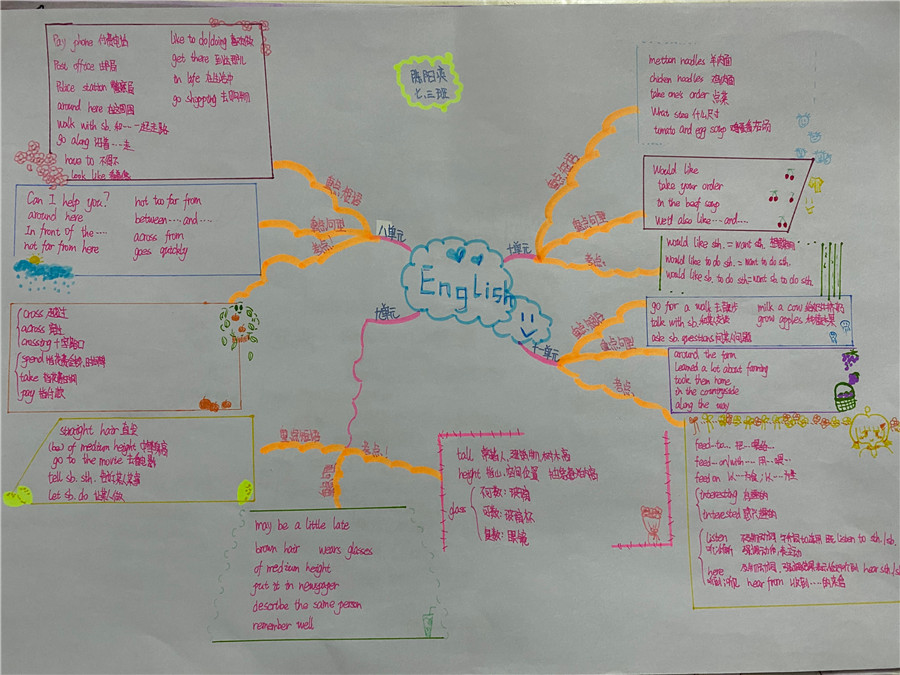 Pay phone 付费电话
Post office 邮局
Police station 警察局
around here 在这周围
walk with sb. 和⋯一起走路
go along 沿着⋯走
have to 不得不
look like 看起来像
like to do/doing 喜欢做
get there 到达那儿
in life 在生活中
go shopping 去购物
七、三班
metton noodles 羊肉面
chicken noodles 鸡肉面
take one's order 点菜
What size 什么尺寸
tomato and egg soup
Would like
take your order
in the beef soup
We'd also like ⋯ and ⋯
would like sth. = want sth.
would like to do sth. = want to do sth.
would like sb. to do sth = want sb to do sth
Can I help you?
around here
In front of the ⋯
not far from here
not too far from
between ⋯ and ⋯
across from
goes quickly
重点短语
重点句型
考点
八单元
English
十单元
重点短语
重点句型
考点
go for a walk 去散步
talk with sb.
ask sb. questions 问某人问题
milk a cow
grow apples
around the farm
Learned a lot about farming
took them home
in the countryside
along the way
十一单元
重点句型
考点
cross
across
crossing 十字路口
spend
take
pay
九单元
straight hair 直发
(be) of medium height 中等身高
go to the movie 去看电影
tell sb. sth. 告诉某人某事
Let sb. do 让某人做
重点短语
考点
tall
height
glass
不可数：玻璃
可数：玻璃杯
复数：眼镜
may be a little late
brown hair wears glasses
of medium height
put it in newspaper
describe the same person
remember well
feed⋯to⋯ 把⋯喂给⋯
feed⋯on/with⋯ 用⋯喂⋯
feed on 以⋯为食
interesting 有趣的
interested 感兴趣的
listen
here
hear from 收到⋯的来信